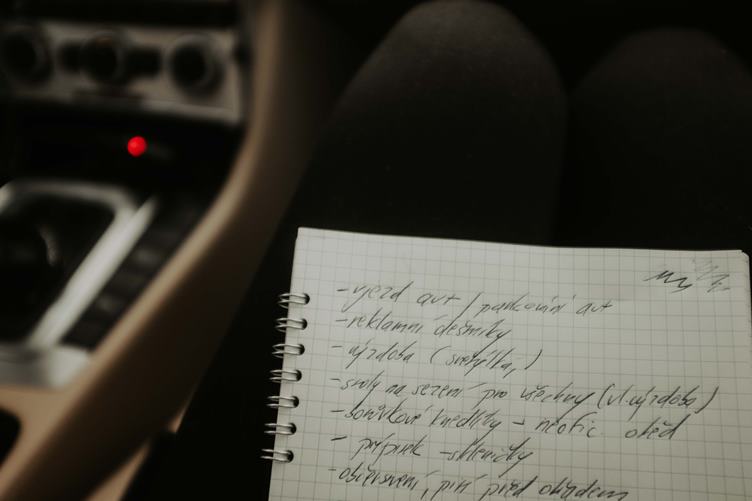 -vjezd aut / parkování aut
-reklamní deštníky
-výzdoba (světýlka,)
-stoly na sezení pro všechny (vl. výzdoba)
-borůvkové knedlíky - neofic. oběd
- přípitek -skleničky
-občerstvení, pití před obřadem